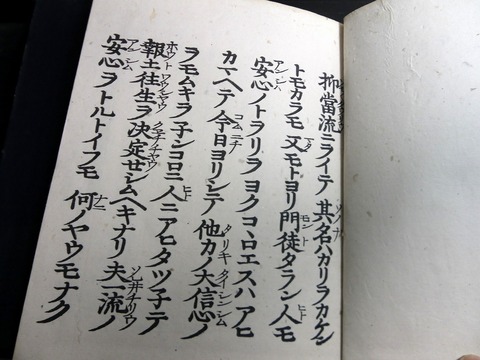 抑當流ニヲイテ其名ハカリヲカケン
トモカラモ又モトヨリ門徒タラン人モ
安心ノトヲリヲヨクコヽロエスハアヒ
カマヘテ今日ヨリシテ他力ノ大信心ノ
ヲモムキヲ子ンコロニ人ニアヒタツ子テ
報土往生ヲ決定セシムヘキナリ夫一流ノ
安心ヲトルトイフモ何ノヤウモナク